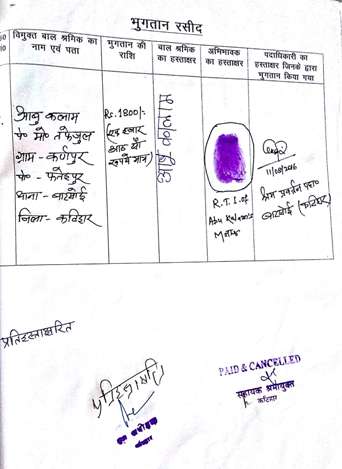 भुगतान रसीद
विमुक्त बाल श्रमिक का नाम एवं पता
भुगतान की राशि
बाल श्रमिक का हस्ताक्षर
अभिभावक का हस्ताक्षर
पदाधिकारी का हस्ताक्षर जिनके द्वारा भुगतान किया गया
आबु कलाम
पे० मो० तफेजुल
ग्राम - कर्णपुर
पो० - फतेहपुर
थाना - बारसोई
जिला - कटिहार
Rs. 1800/-
(एक हजार
आठ सौ
रूपये मात्र)
आबु कलाम
R.T.I. of
Abu Kalam's
Mother
11/08/2016
श्रम प्रवर्तन पदा०
बारसोई (कटिहार)
प्रतिहस्ताक्षरित
प्रतिहस्ताक्षरित
PAID & CANCELLED
सहायक श्रमायुक्त
कटिहार